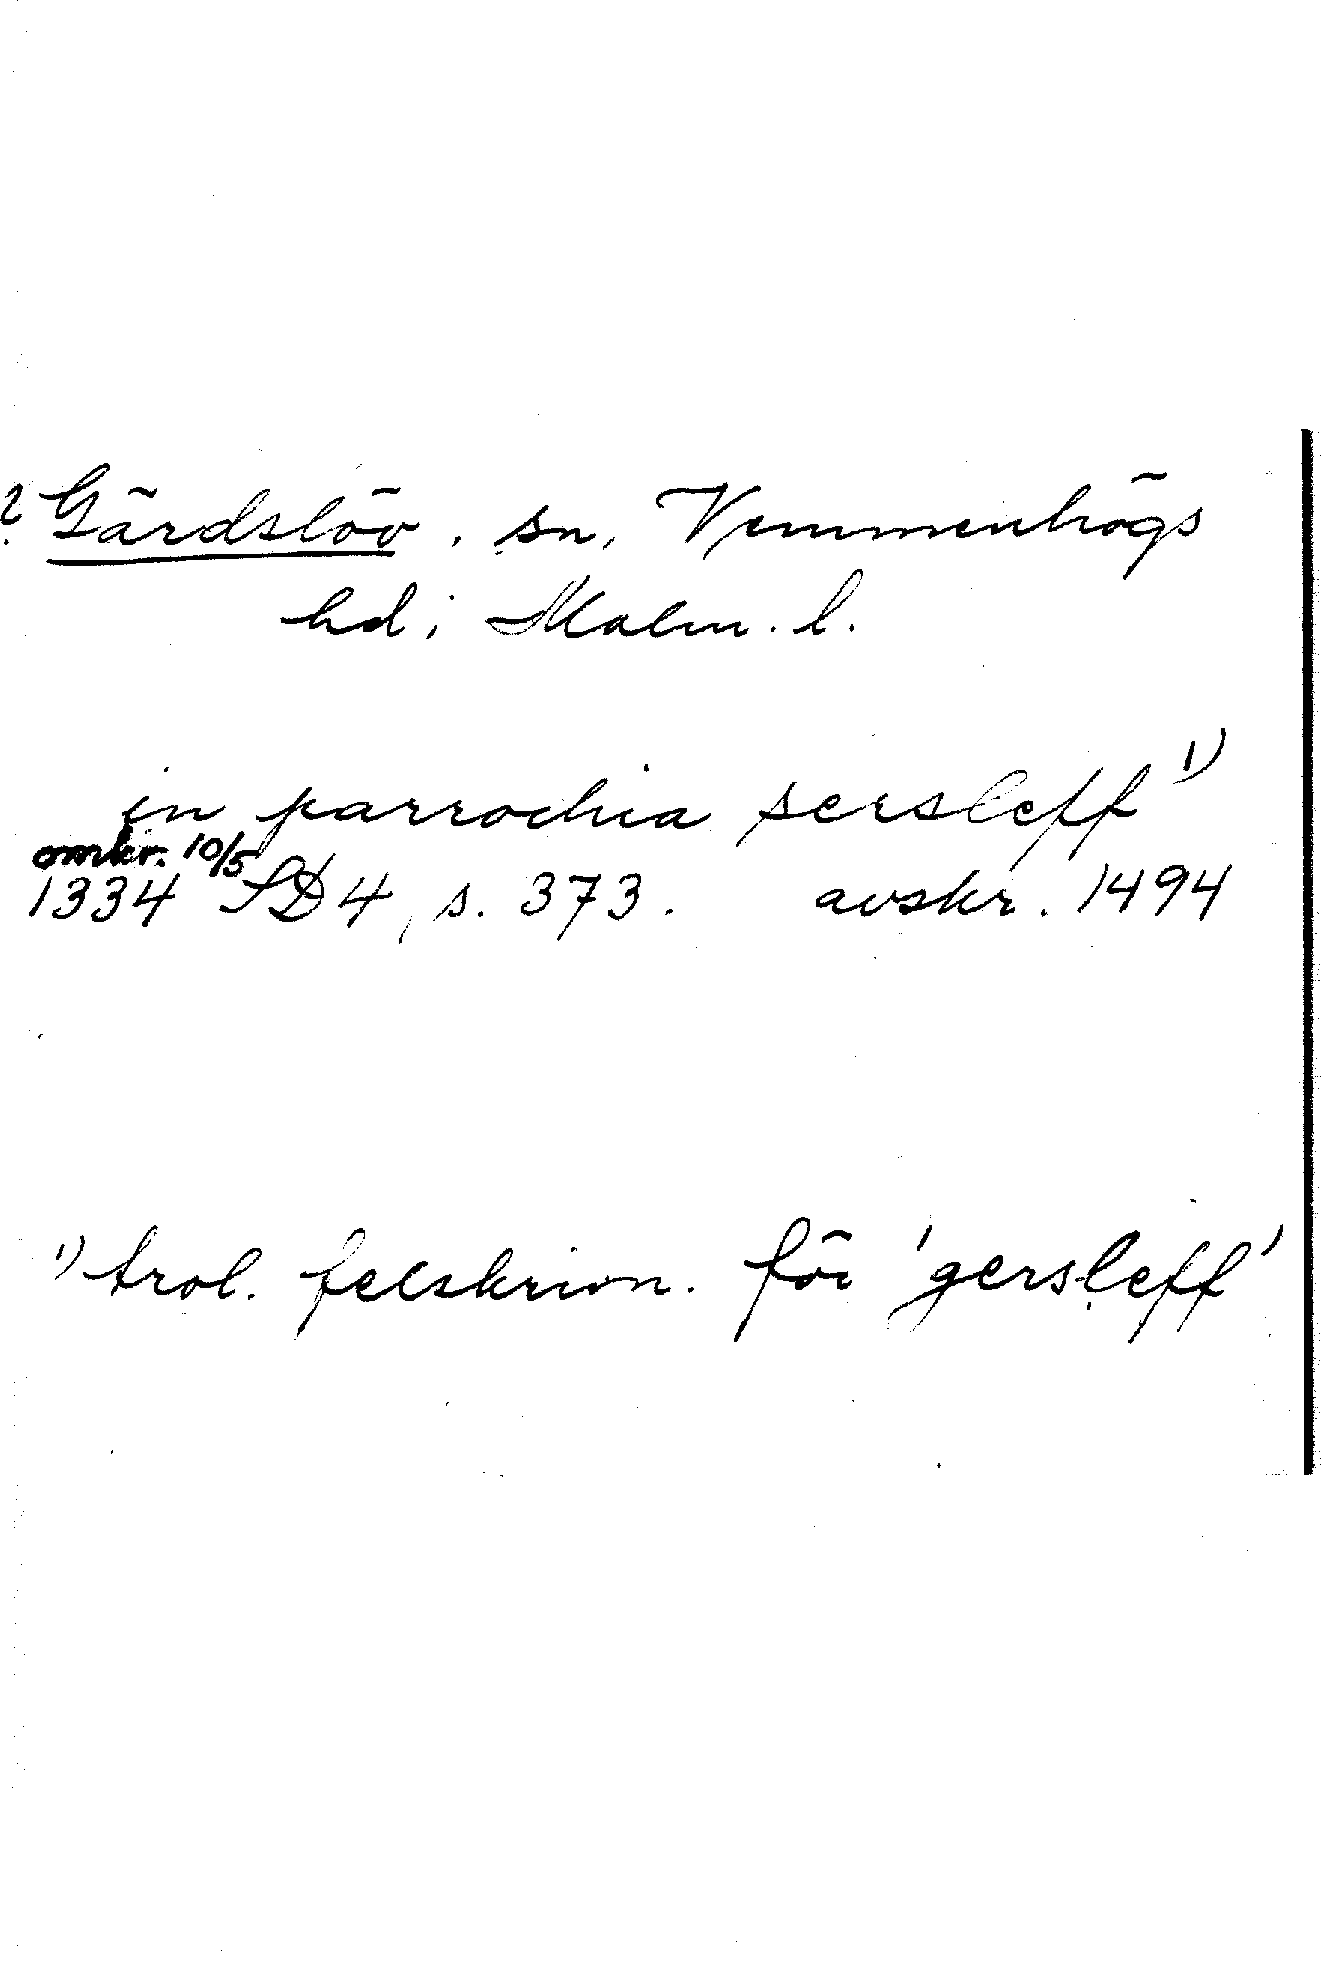 ? Gärdslöv, sn, Vemmenhögs
hd, Malm. l.
in parrochia sersleff 1)
omkr. 10/5
1334 SD 4, s. 373. avskr. 1494
1) trol. felskrivn. för 'gersleff'